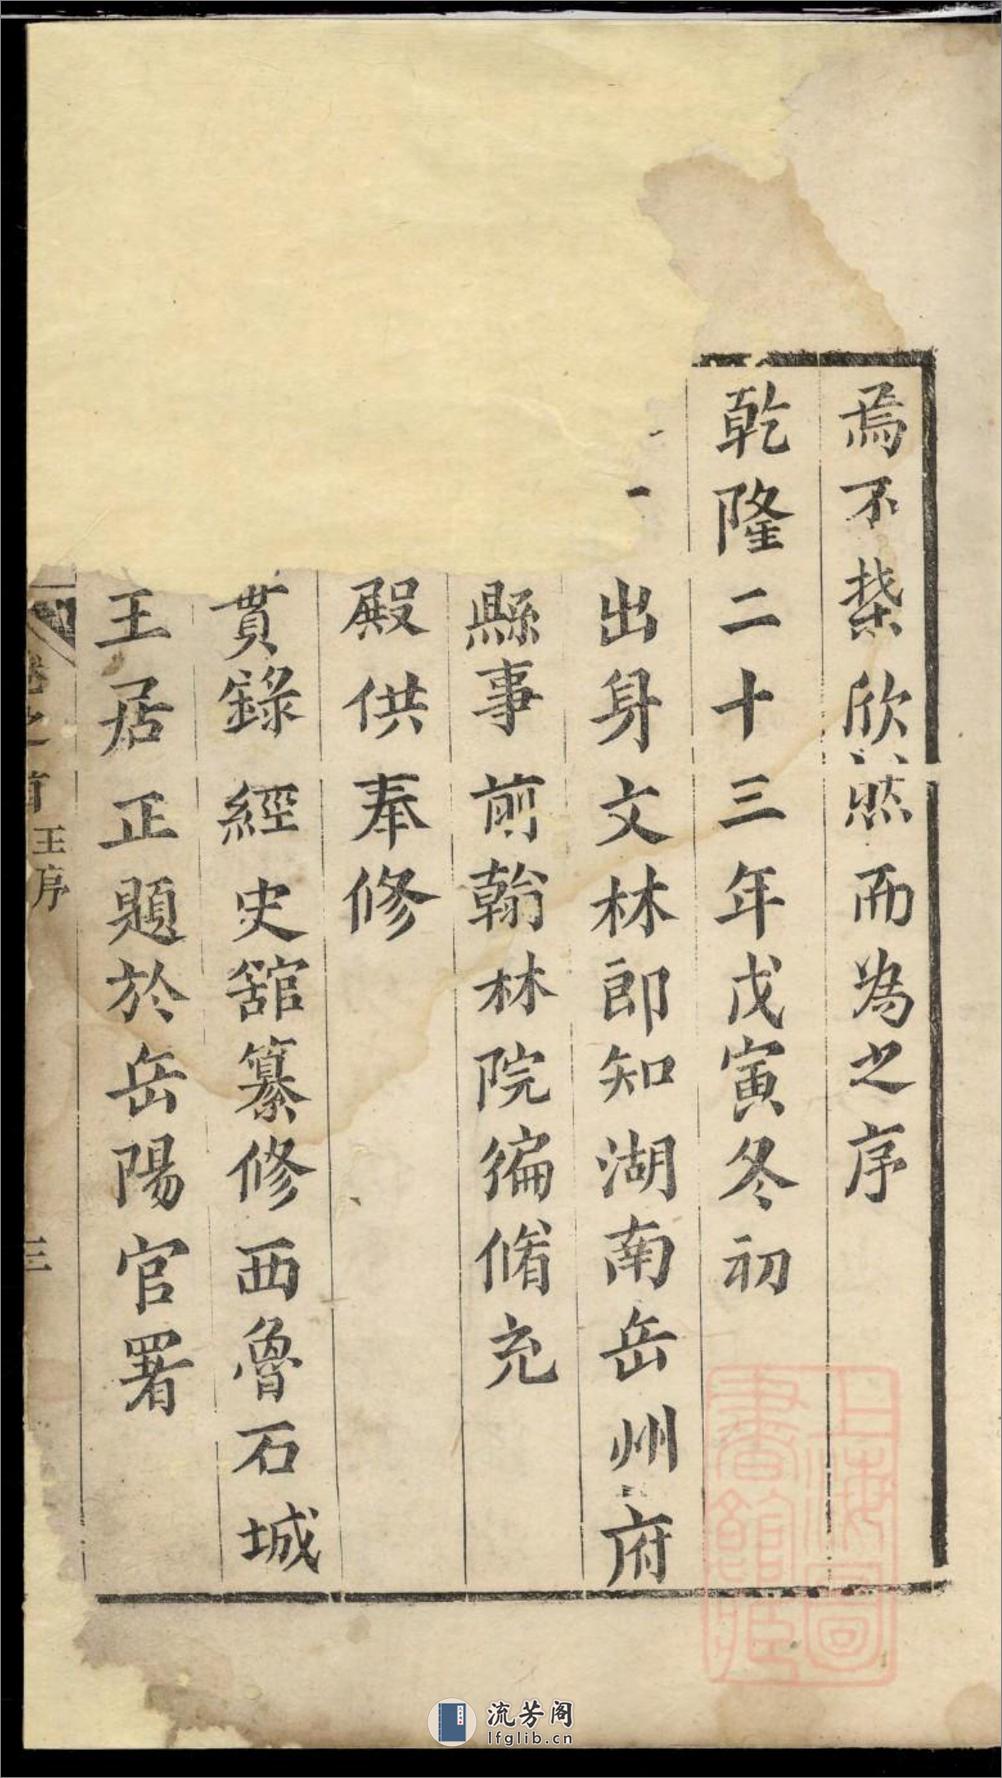 焉不禁欣然而為之序
乾隆二十三年戊寅冬初
出身文林郎知湖南岳州府
縣事前翰林院編脩充
殿供奉修
貫錄經史舘纂修西魯石城
王居正題於岳陽官署
卷之首 王序
三
上海圖書館藏
流芳阁
lfglib.cn